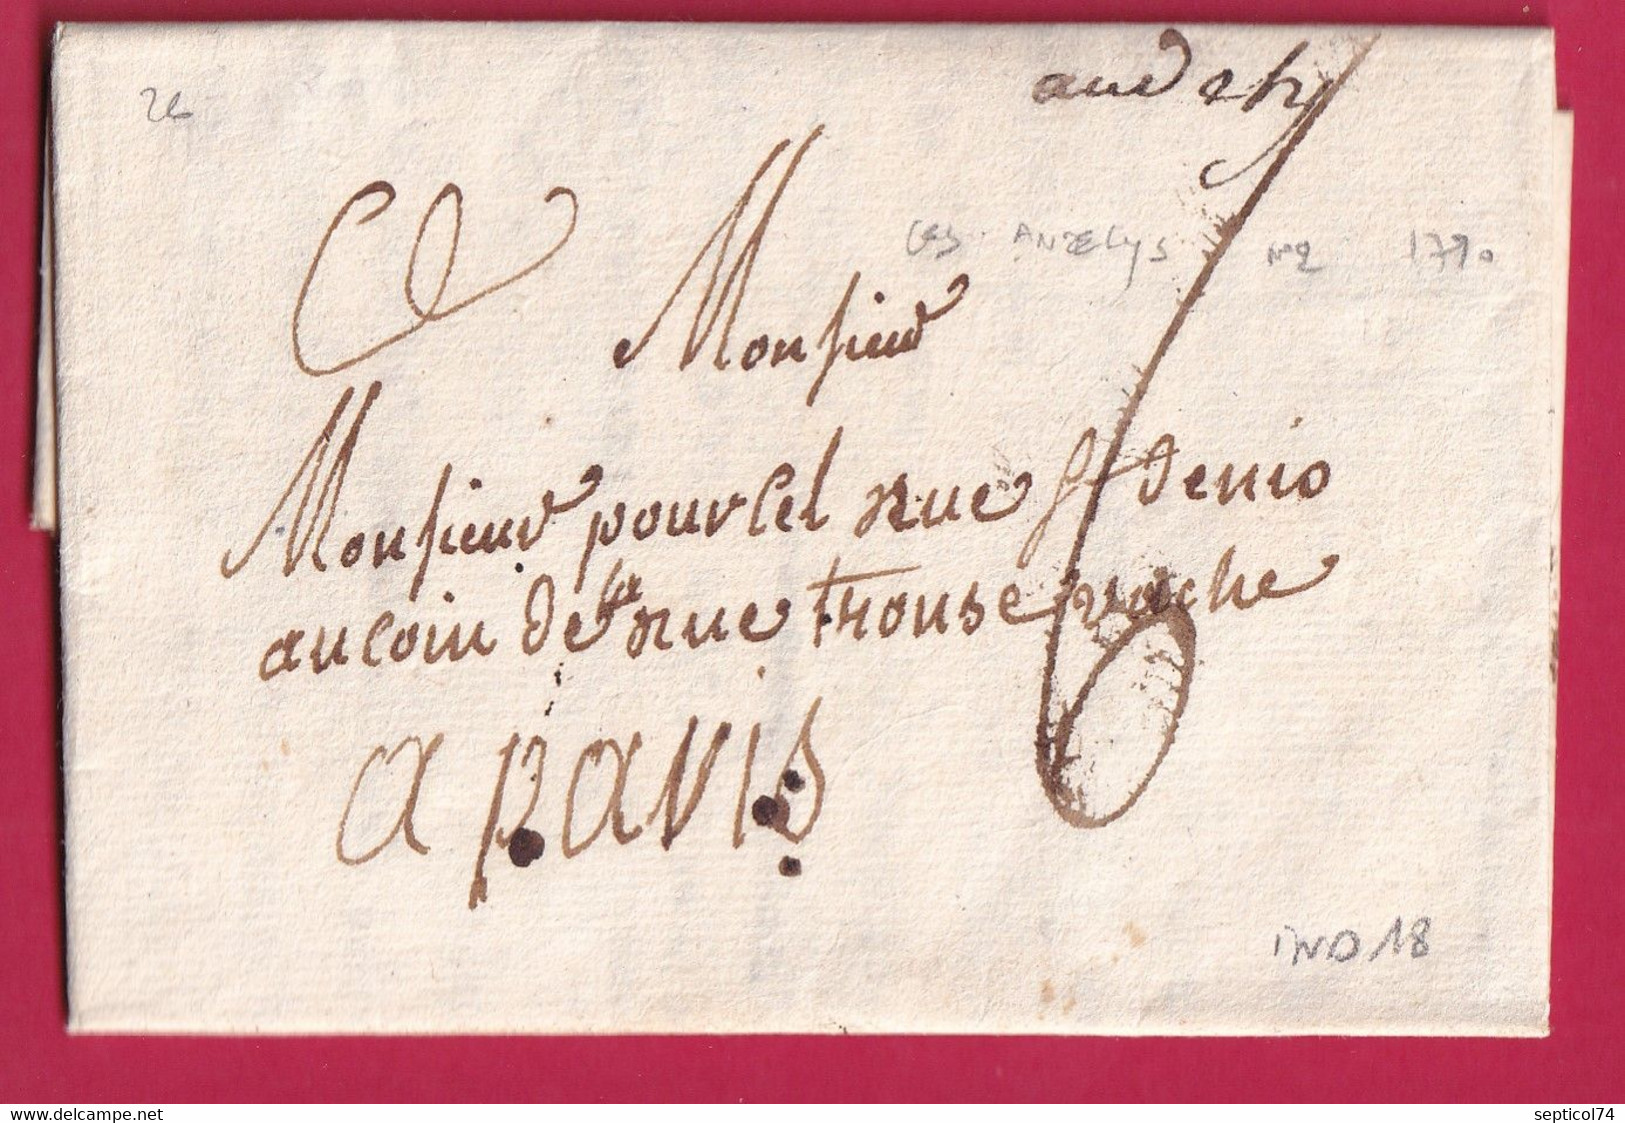 andely
26
Les ANDELYS n°2 1790
Monsieur
Monsieur pourcel rue St denis
au coin de la rue trousse vache
a paris
IND 18
www.delcampe.net
septicol74